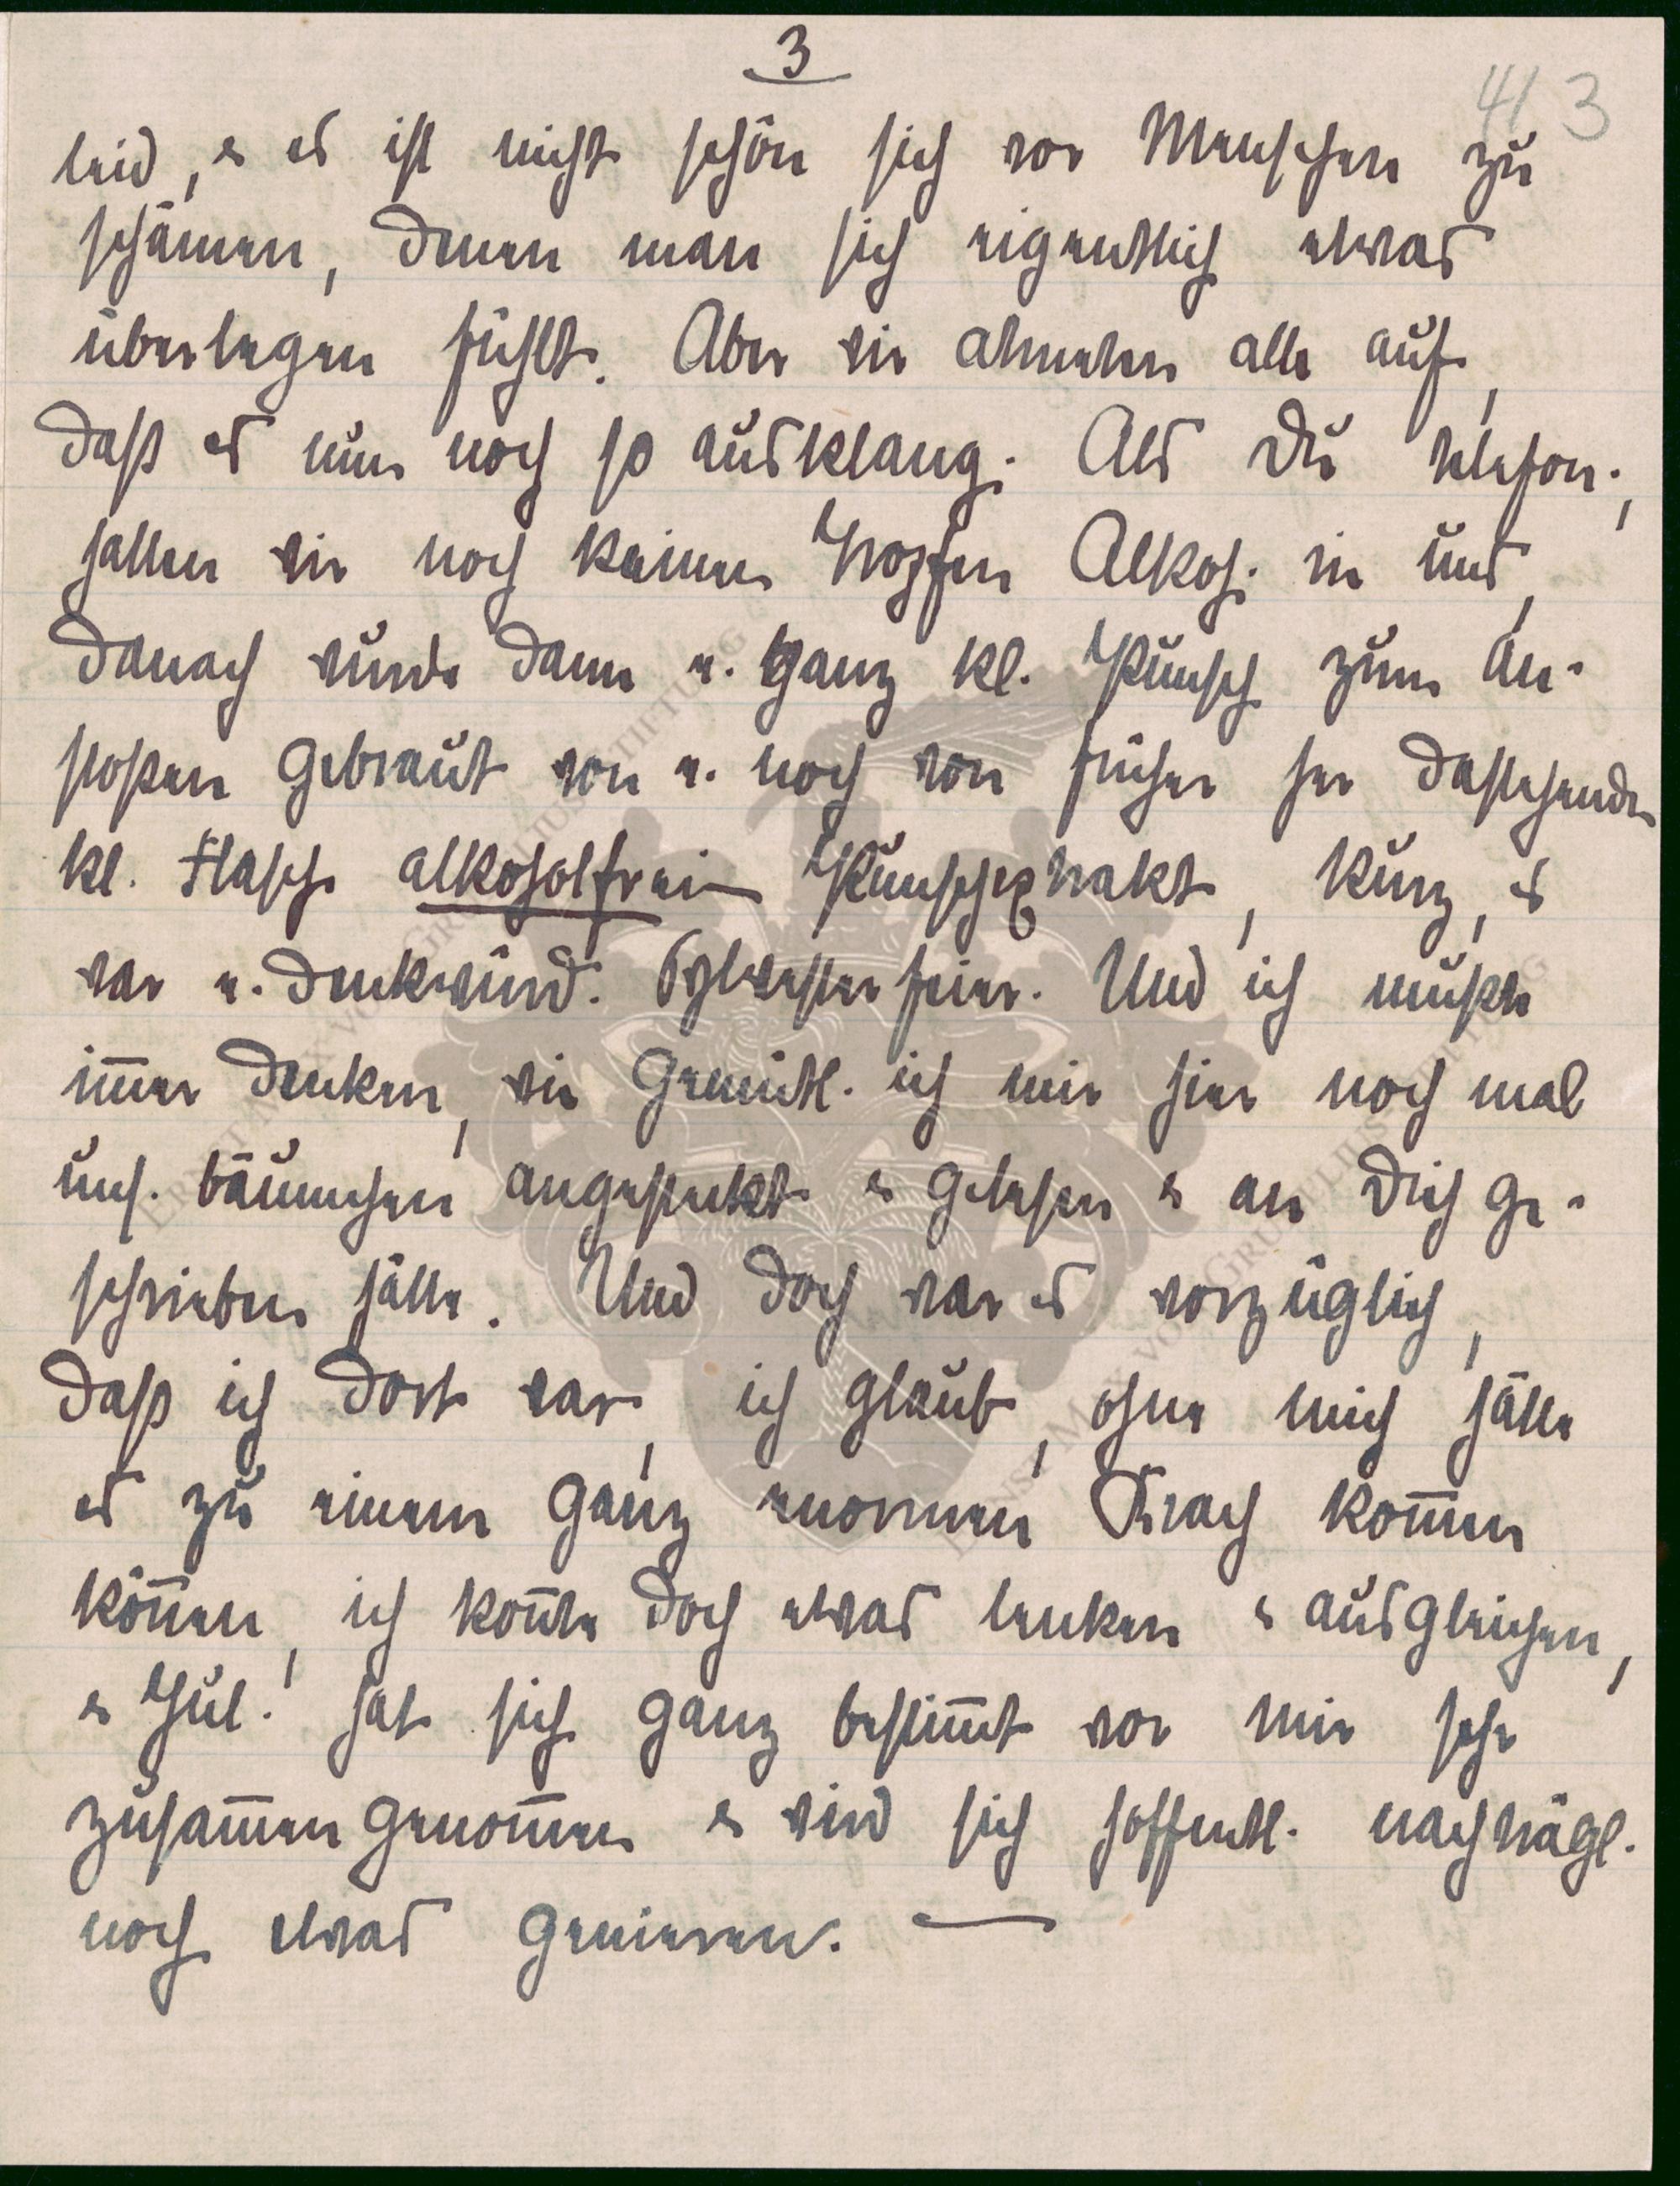 3
41 3
leid, & es ist nicht schön sich vor Menschen zu
schämen, denen man sich eigentlich etwas
überlegen fühlt. Aber wir atmeten alle auf,
daß es nun noch so ausklang. Als Du telefon.,
hatten wir noch keinen Tropfen Alkoh. in uns,
danach wurde dann e. ganz kl. Punsch zum An-
stoßen gebraut von e. noch von früher her dastehenden
kl. Flasche alkoholfrei Punschextrakt, kurz, es
war e. denkwürd. Sylvesterfeier. Und ich mußte
im̅er denken, wie gemütl. ich mir hier noch mal
uns. Bäumchen angesteckt & gelesen & an Dich ge-
schrieben hätte. Und doch war es vorzüglich,
daß ich dort war, ich glaub, ohne mich hätte
es zu einem ganz enormen Krach kom̅en
kön̅en, ich kon̅te doch etwas lenken & ausgleichen,
& Jul. hat sich ganz bestim̅t vor mir sehr
zusam̅engenom̅en & wird sich hoffentl. nachträgl.
noch etwas genieren. —
ERNST MAX VON GRULIUS STIFTUNG